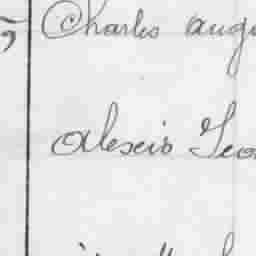 Charles augu
alexis Geo